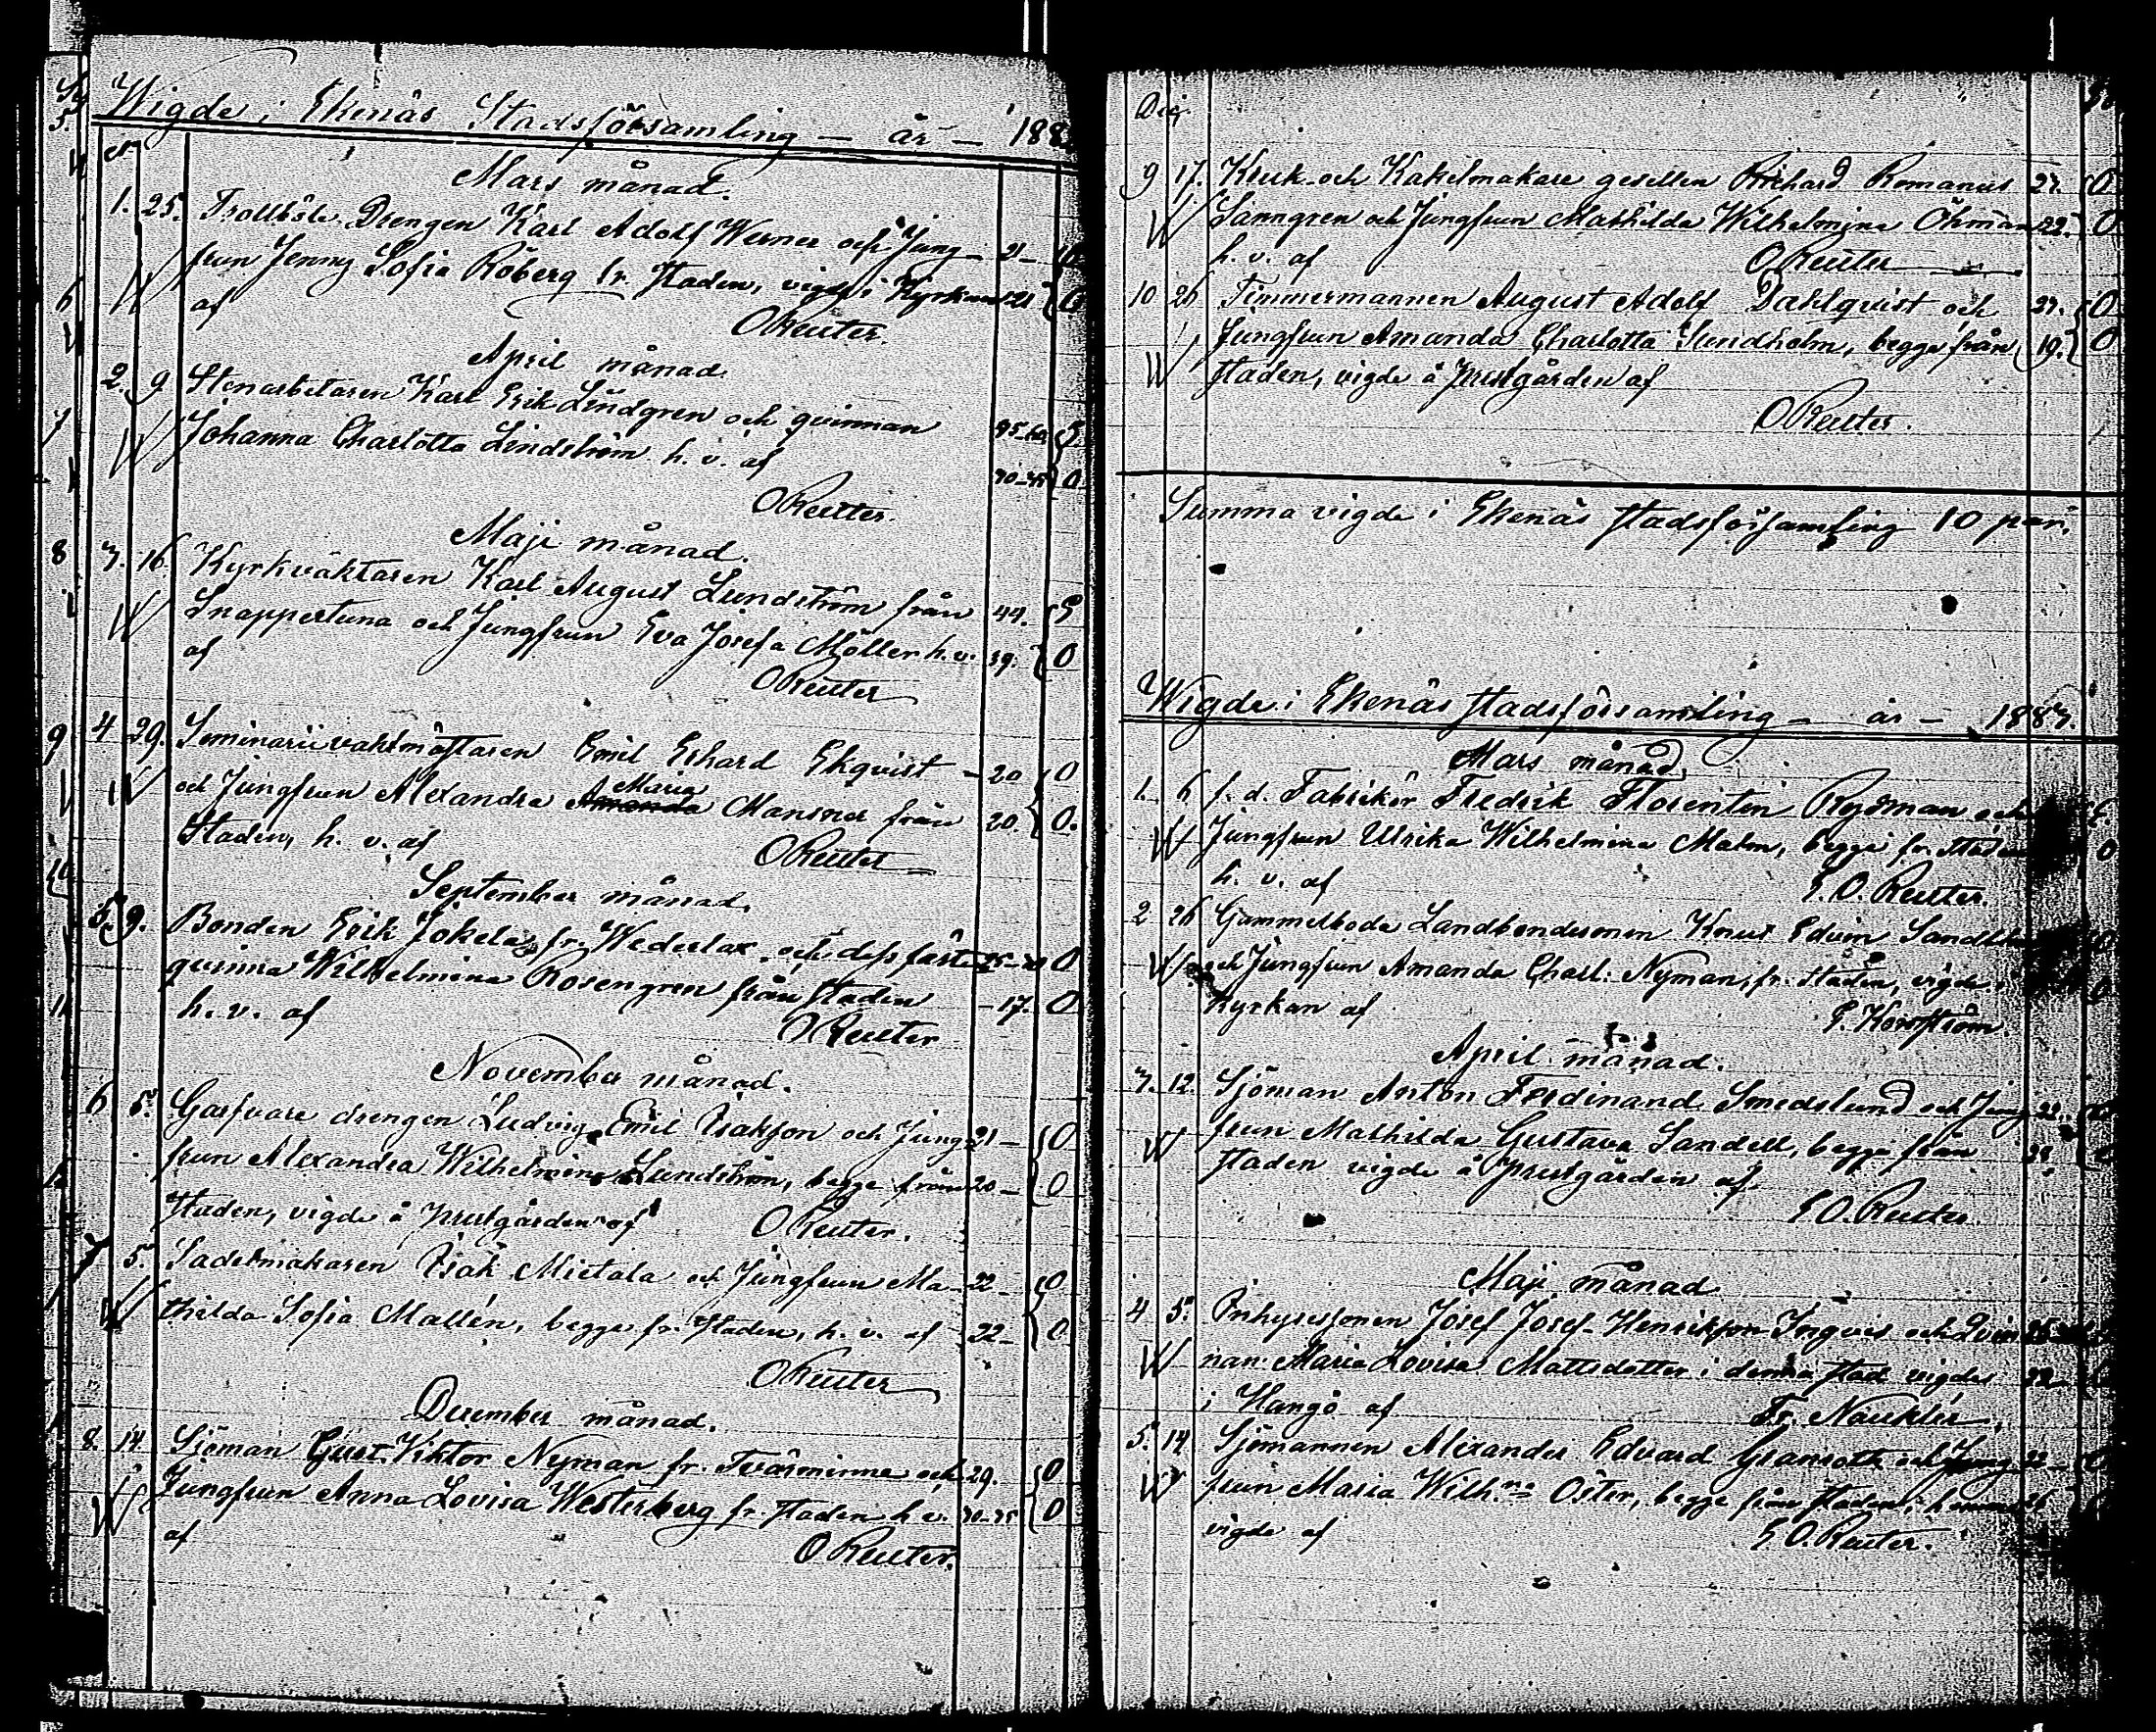 Wigde i Ekenäs Stadsförsamling — år — 188
Mars månad.
1. 25. Trollböle Drengen Karl Adolf Werner och Jung- 21-
frun Jenny Sofia Röberg fr. staden, vigde i Kyrkan 21 0
af
O Reuter.
April månad.
2. 9 Stenarbetaren Karl Erik Lindgren och qvinnan
Johanna Charlotta Lindström h. v. af 0
O Reuter.
Maji månad.
3. 16. Kyrkväktaren Karl August Lundström från 44.
Snappertuna och Jungfrun Eva Josefa Möller h. v. 39. 0
af
O Reuter
4 29. Seminariivaktmästaren Emil Erhard Ekqvist - 20 0
Maria
och Jungfrun Alexandra Amanda Mansner från 20. 0.
Staden, h. v. af
O Reuter
September månad.
5. 9. Bonden Erik Jokela fr. Wederlax och dess fäste- 0
qvinna Wilhelmina Rosengren från staden - 17. 0
h. v. af
O Reuter
November månad.
6 5. Garfvare drengen Ludvig Emil Isaksson och Jung- 21 - 0
frun Alexandra Wilhelmina Lundström, begge från 20 - 0
staden, vigde å prestgården af O Reuter.
7 5. Sadelmakaren Isak Mietala och Jungfrun Ma- 22 - 0
thilda Sofia Mallén, begge fr. staden, h. v. af 22 - 0
O Reuter
December månad.
8. 14. Sjöman Gust. Viktor Nyman fr. Tvärminne och 29. 0
Jungfrun Anna Lovisa Westerberg fr. staden h v. 0
af
O Reuter.
9 17. Kruk- och Kakelmakare gesellen Richard Romanus 27. 0
Sanngren och Jungfrun Mathilda Wilhelmina Öhman 22. 0
h. v. af
O Reuter
10 26 Timmermannen August Adolf Dahlqvist och 27. 0
Jungfrun Amanda Charlotta Sundholm, begge från 19. 0
staden, vigde å prestgården af
O Reuter.
Summa vigde i Ekenäs stadsförsamling 10 par.
Wigde i Ekenäs stadsförsamling — år — 1883.
Mars månad.
1. 6 f. d. Fabrikör Fredrik Florentin Rydman och
Jungfrun Ulrika Wilhelmina Malm, begge fr. staden 0
h. v. af
E. O. Reuter.
2 26 Gammelboda Landbondesonen Knut Edvin
och Jungfrun Amanda Charl. Nyman, fr. staden, vigde i
Kyrkan af
April månad.
3. 12. Sjöman Anton Ferdinand Smedslund och Jung-
frun Mathilda Gustava Sandell, begge från
staden vigde å prestgården af
E O. Reuter.
Maji månad
4 5. Inhysessonen Josef Josef-Henriksson Ingves och Qvin-
nan Maria Lovisa Mattsdotter i denna stad vigdes
i Hangö af Fr. Nauklér.
5. 14 Sjömannen Alexander Edvard Granroth och Jung-
frun Maria Wilh:na Öster, begge från staden, hemma
vigde af E O. Reuter.